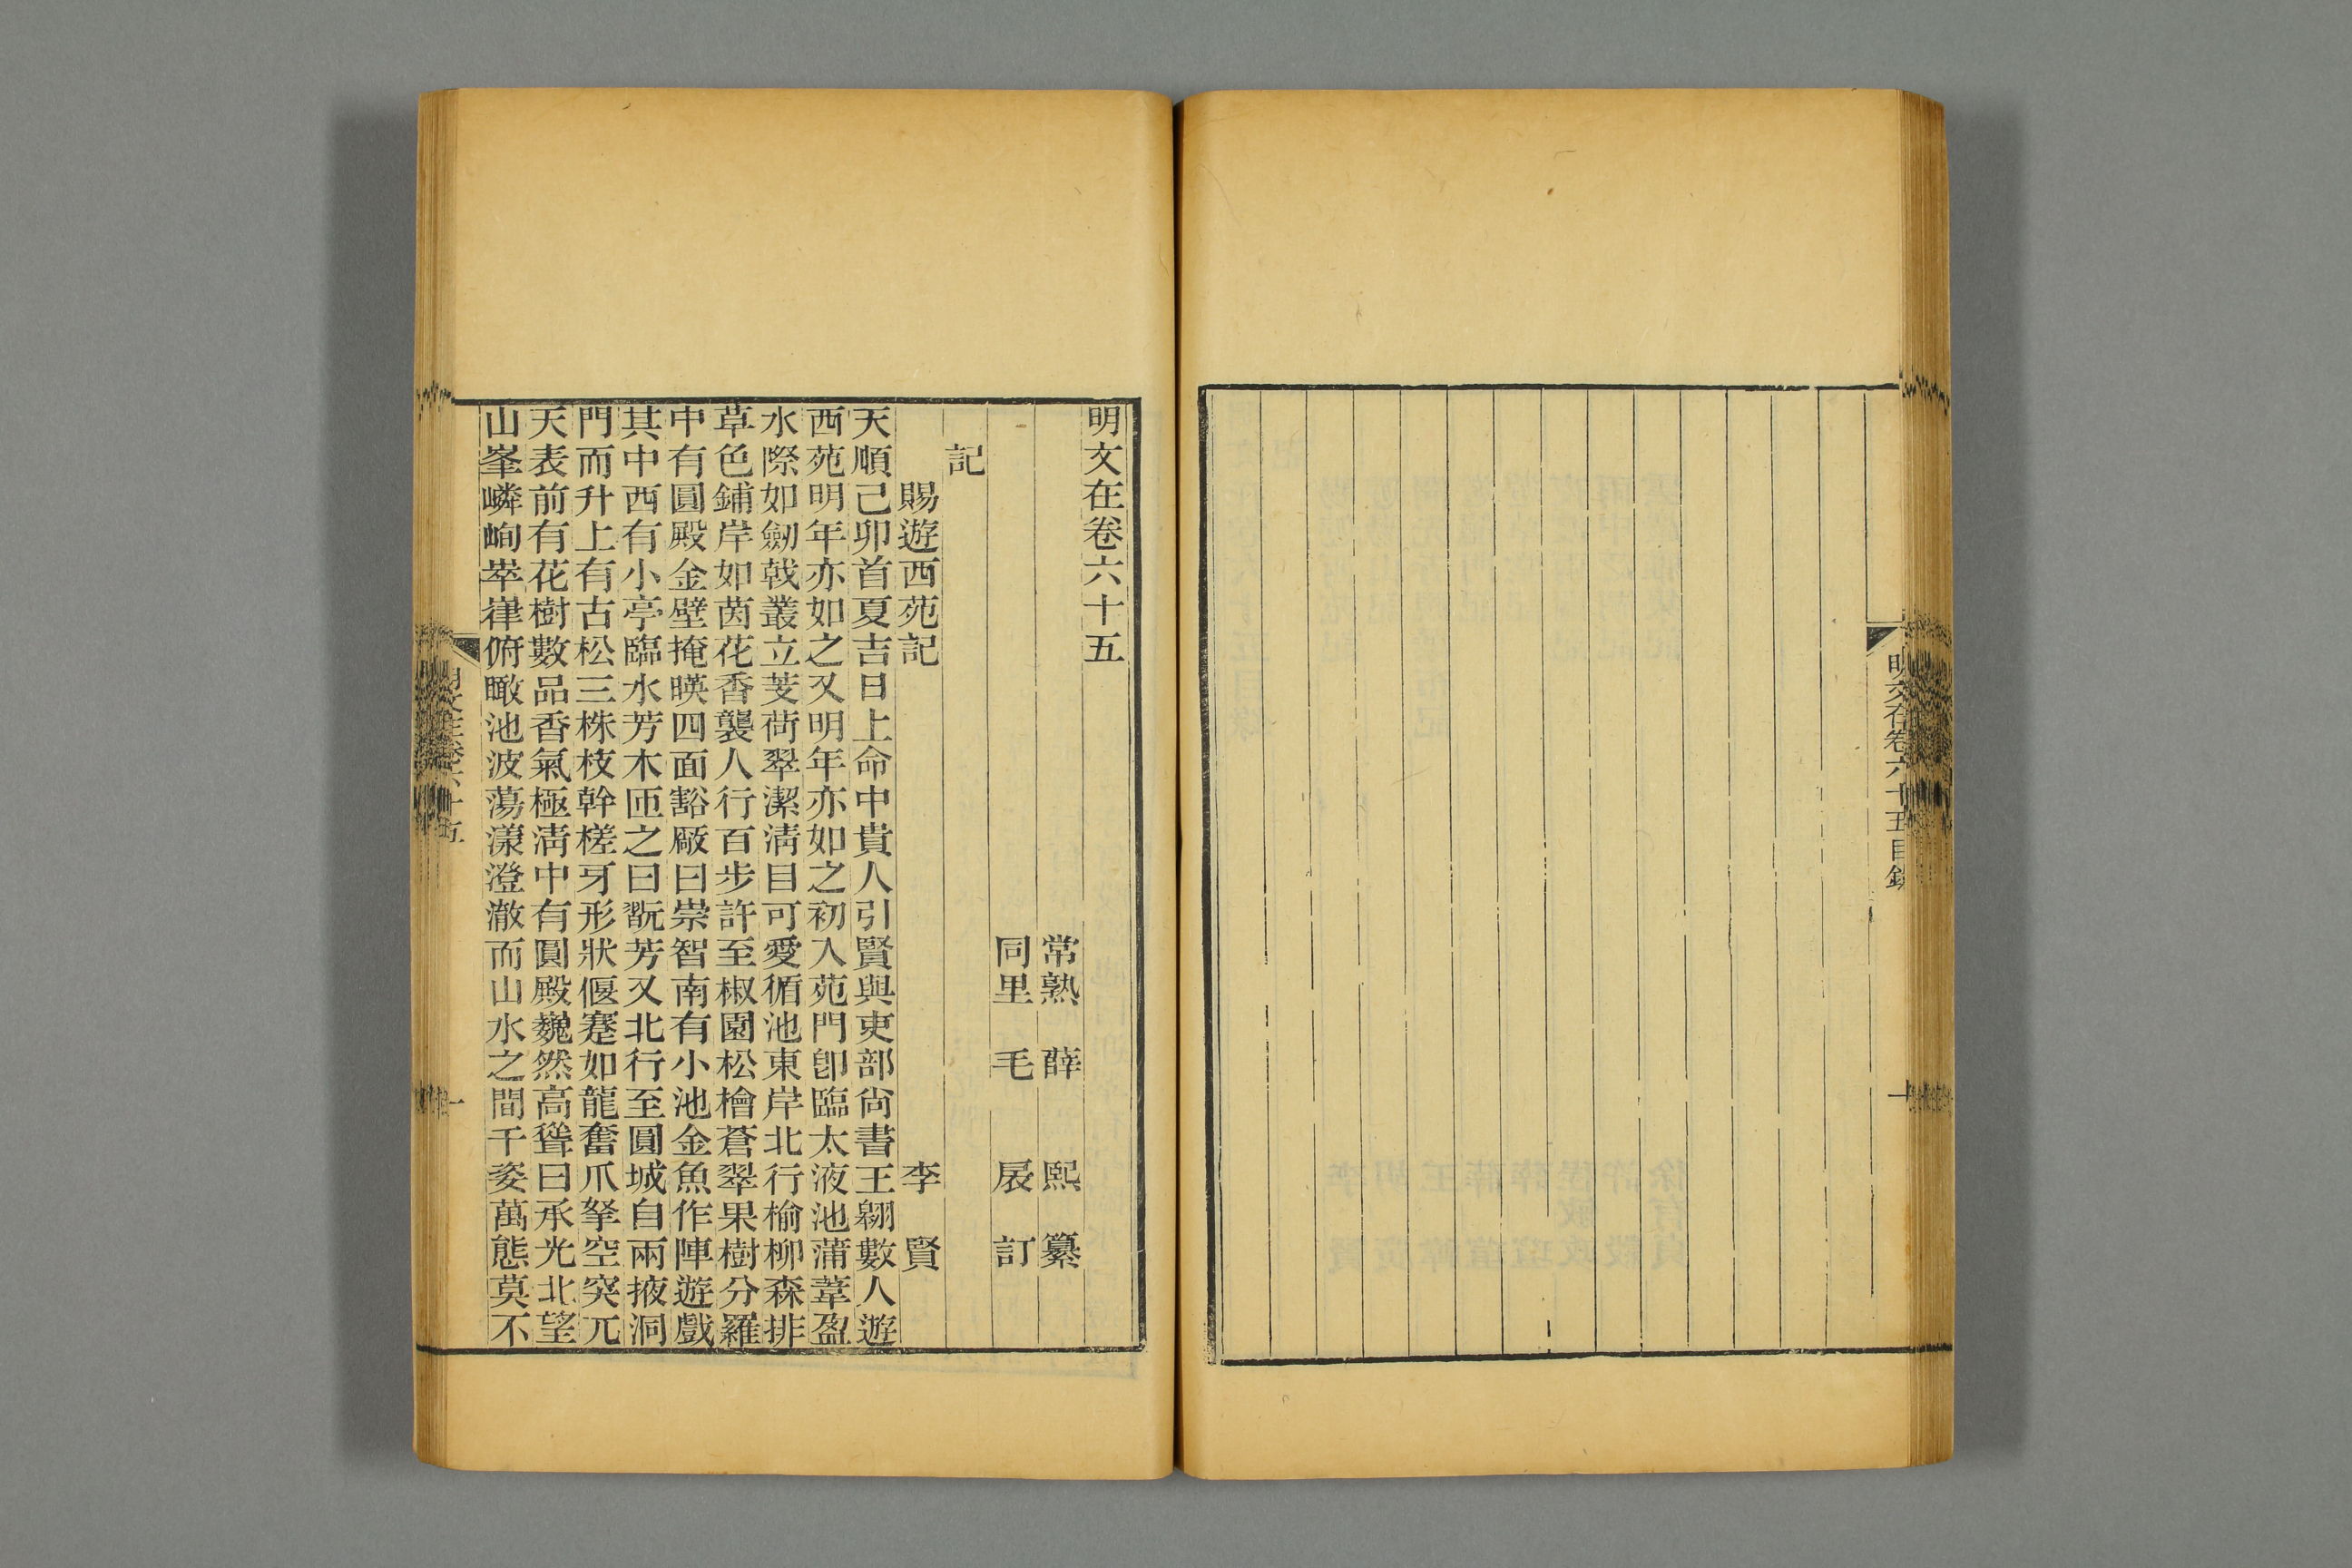 明文在卷六十五目錄
一
明文在卷六十五
常熟 薛 熙 纂
同里 毛 扆 訂
記
賜遊西苑記 李 賢
天順己卯首夏吉日上命中貴人引賢與吏部尚書王翺數人遊
西苑明年亦如之又明年亦如之初入苑門卽臨太液池蒲葦盈
水際如劒戟叢立芰荷翠潔淸目可愛循池東岸北行榆柳森排
草色鋪岸如茵花香襲人行百步許至椒園松檜蒼翠果樹分羅
中有圓殿金壁掩暎四面豁厰曰崇智南有小池金魚作陣遊戲
其中西有小亭臨水芳木匝之曰翫芳又北行至圓城自兩掖洞
門而升上有古松三株枝幹槎牙形狀偃蹇如龍奮爪拏空突兀
天表前有花樹數品香氣極淸中有圓殿巍然高聳曰承光北望
山峯嶙峋崒嵂俯瞰池波蕩漾澄澈而山水之間千姿萬態莫不
明文在卷六十五
一